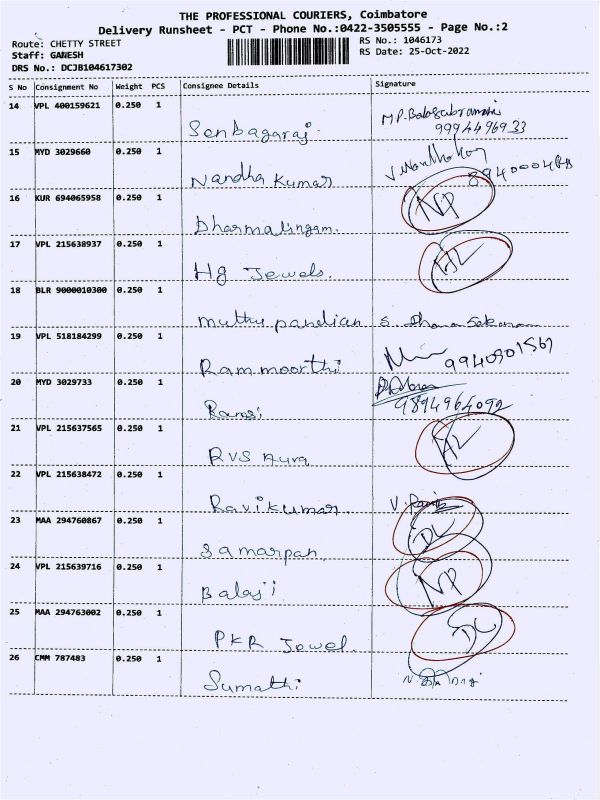 THE PROFESSIONAL COURIERS, Coimbatore
Delivery Runsheet - PCT - Phone No.:0422-3505555 - Page No.:2
Route: CHETTY STREET
RS No.: 1046173
Staff: GANESH
RS Date: 25-Oct-2022
DRS No.: DCJB104617302
S No Consignment No Weight PCS Consignee Details Signature
14 VPL 400159621 0.250 1 Senbagaraj
9994496933
15 MYD 3029660 0.250 1 Nandha Kumar
16 KUR 694065958 0.250 1 Dharmalingam. NP
17 VPL 215638937 0.250 1 Hg Jewels.
18 BLR 9000010300 0.250 1 muthu pandian S.
19 VPL 518184299 0.250 1 Rammoorthi
20 MYD 3029733 0.250 1
9894964092
21 VPL 215637565 0.250 1 RVS Aura
22 VPL 215638472 0.250 1 Ravikumar
23 MAA 294760867 0.250 1 Samarpan DL
24 VPL 215639716 0.250 1 Balaji NP
25 MAA 294763002 0.250 1 PKR Jewel. DL
26 CMM 787483 0.250 1 Sumathi